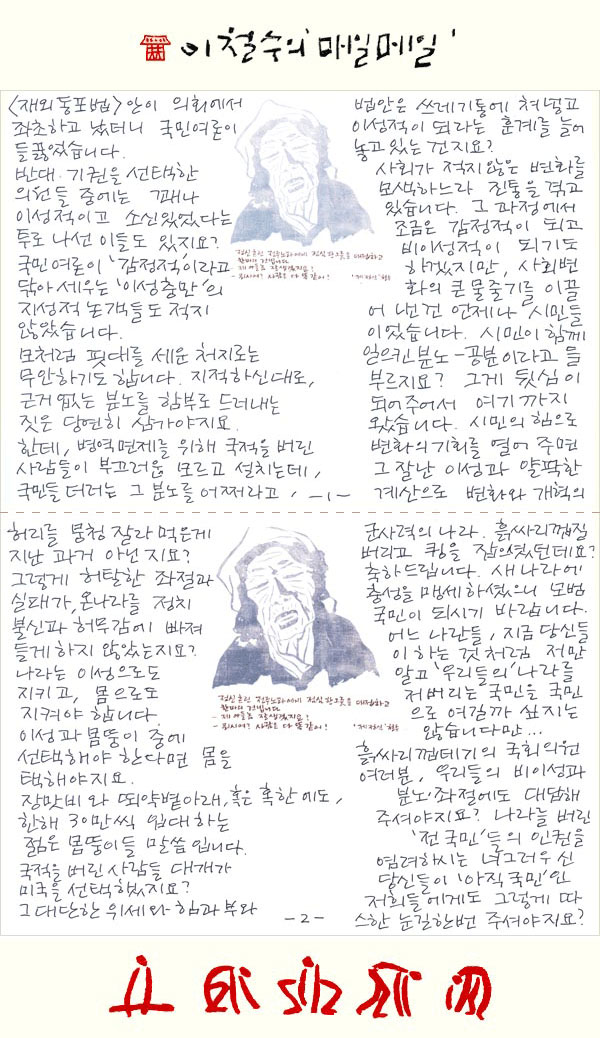 이철수의 '매일메일'
<재외동포법>안이 의회에서
좌초하고 났더니 국민여론이
들끓었습니다.
반대·기권을 선택한
의원들 중에는 꽤나
이성적이고 소신있었다는
투로 나선 이들도 있지요?
국민여론이 '감정적'이라고
닦아세우는 '이성충만'의
지성적 논객들도 적지
않았습니다.
모처럼 핏대를 세운 처지로는
무안하기도 합니다. 지적하신대로,
근거없는 분노를 함부로 드러내는
짓은 당연히 삼가야지요.
한데, 병역면제를 위해 국적을 버린
사람들이 부끄러움 모르고 설치는데,
국민들더러는 그 분노를 어쩌라고,
-1-
법안은 쓰레기통에 쳐넣고
이성적이 되라는 훈계를 늘어
놓고 있는 건지요?
사회가 적지않은 변화를
모색하느라 진통을 겪고
있습니다. 그 과정에서
조금은 감정적이 되고
비이성적이 되기도
하겠지만, 사회변
화의 큰 물줄기를 이끌
어 낸 건 언제나 시민들
이었습니다. 시민이 함께
일으킨 분노-공분이라고들
부르지요? 그게 뒷심이
되어주어서 여기까지
왔습니다. 시민의 힘으로
변화의 기회를 열어 주면
그 잘난 이성과 얄팍한
계산으로 변화와 개혁의
허리를 뭉청 잘라먹은게
지난 과거 아닌지요?
그렇게 허탈한 좌절과
실패가, 온나라를 정치
불신과 허무감에 빠져
들게 하지 않았는지요?
나라는 이성으로도
지키고, 몸으로도
지켜야 합니다.
이성과 몸뚱이 중에
선택해야 한다면 몸을
택해야지요.
장맛비와 뙤약볕아래, 혹은 혹한에도,
한해 30만씩 입대하는
젊은 몸뚱이들 말씀입니다.
국적을 버린 사람들 대개가
미국을 선택했지요?
그 대단한 위세와 힘과 부와
-2-
전쟁 혼란
저 어른 잘생겼지요?
군사력의 나라. 흙싸리껍질
버리고 킹을 잡으셨던데요?
축하드립니다. 새 나라에
충성을 맹세하셨으니 모범
국민이 되시기 바랍니다.
어느 나란들, 지금 당신들
이 하는 것처럼 저만
알고 '우리들의' 나라를
저버리는 국민을 국민
으로 여길까 싶지는
않습니다만...
흙싸리껍데기의 국회의원
여러분, 우리들의 비이성과
분노·좌절에도 대답해
주셔야지요? 나라를 버린
'전 국민'들의 인권을
염려하시는 너그러우신
당신들이 '아직 국민'인
저희들에게도 그렇게 따
스한 눈길한번 주셔야지요?